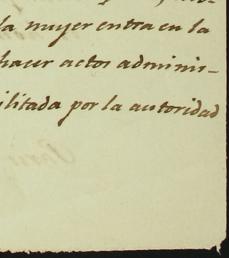 la muger entra en la
hacer actos adminis-
ilitada por la autoridad